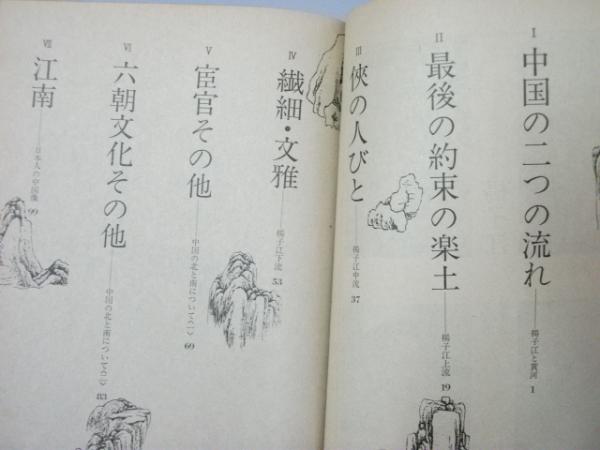 I 中国の二つの流れ——揚子江と黄河 1
II 最後の約束の楽土——揚子江上流 19
III 俠の人びと——揚子江中流 37
IV 繊細・文雅——揚子江下流 53
V 宦官その他——中国の北と南について(一) 69
VI 六朝文化その他——中国の北と南について(二) 83
VII 江南——日本人の中国像 99